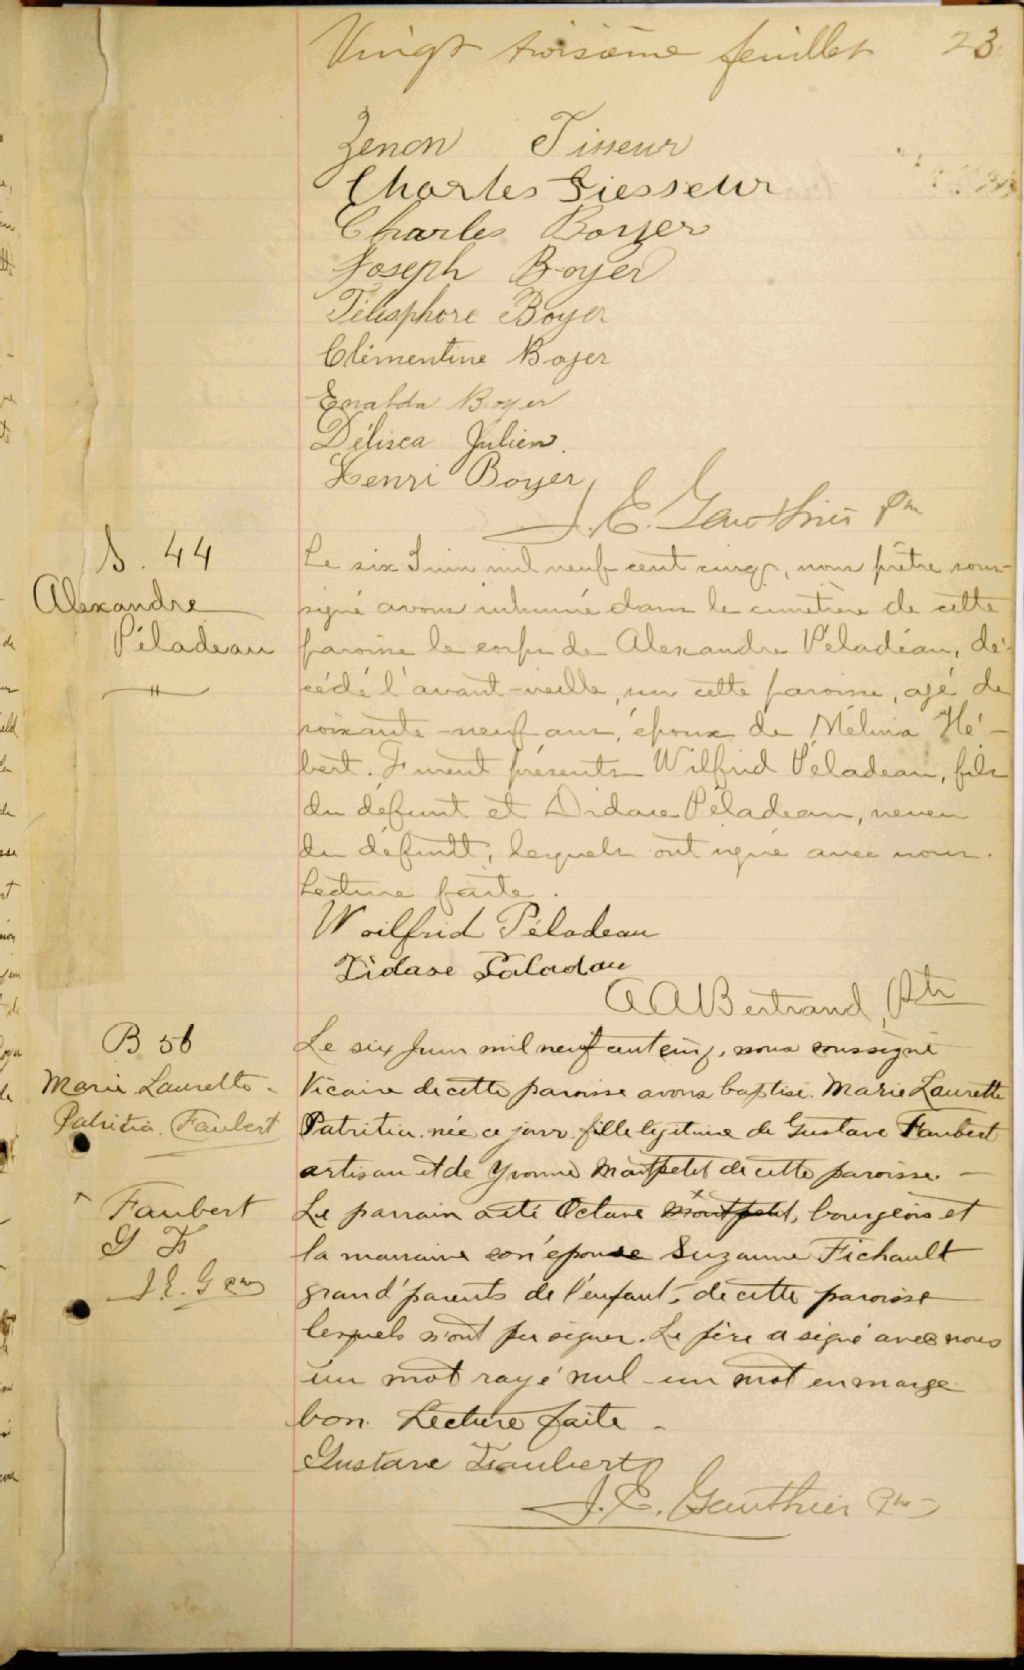 Vingt troisième feuillet 23
Zenon Tisseur
Charles Tiesseur
Charles Boyer
Joseph Boyer
Télésphore Boyer
Clémentine Boyer
Boyer
Délisca Julien.
Henri Boyer
J. E. Gauthier ptre
S. 44
Alexandre
Péladeau
Le six Juin mil neuf cent cinq, nous prêtre sous-
signé avons inhumé dans le cimetière de cette
paroisse le corps de Alexandre Péladeau, dé-
cédé l'avant-veille, en cette paroisse, agé de
soixante-neuf ans, époux de Mélina Hé-
bert. Furent présents Wilfrid Péladeau, fils
du défunt et Didace Péladeau, neveu
du défunt, lesquels ont signé avec nous.
Lecture faite.
Woilfrid Péladeau
Didase Paladau
A A Bertrand, Ptr
B 56
Marie Laurette-
Patritia Faubert
Le six Juin mil neuf cent cinq, nous soussigné
Vicaire de cette paroisse avons baptisé Marie Laurette
Patritia née ce jour fille légitime de Gustave Faubert
artisan et de Yvonne Montpetit de cette paroisse. -
Faubert
G F
J. E. G ptre
Le parrain a été Octave Montpetit, bourgeois et
la marraine son épouse Suzanne Fichault
grand'parents de l'enfant, de cette paroisse
lesquels n'ont pu signer. Le père a signé avec nous
un mot rayé nul - un mot en marge
bon. Lecture faite -
Gustave Faubert
J. E. Gauthier ptre